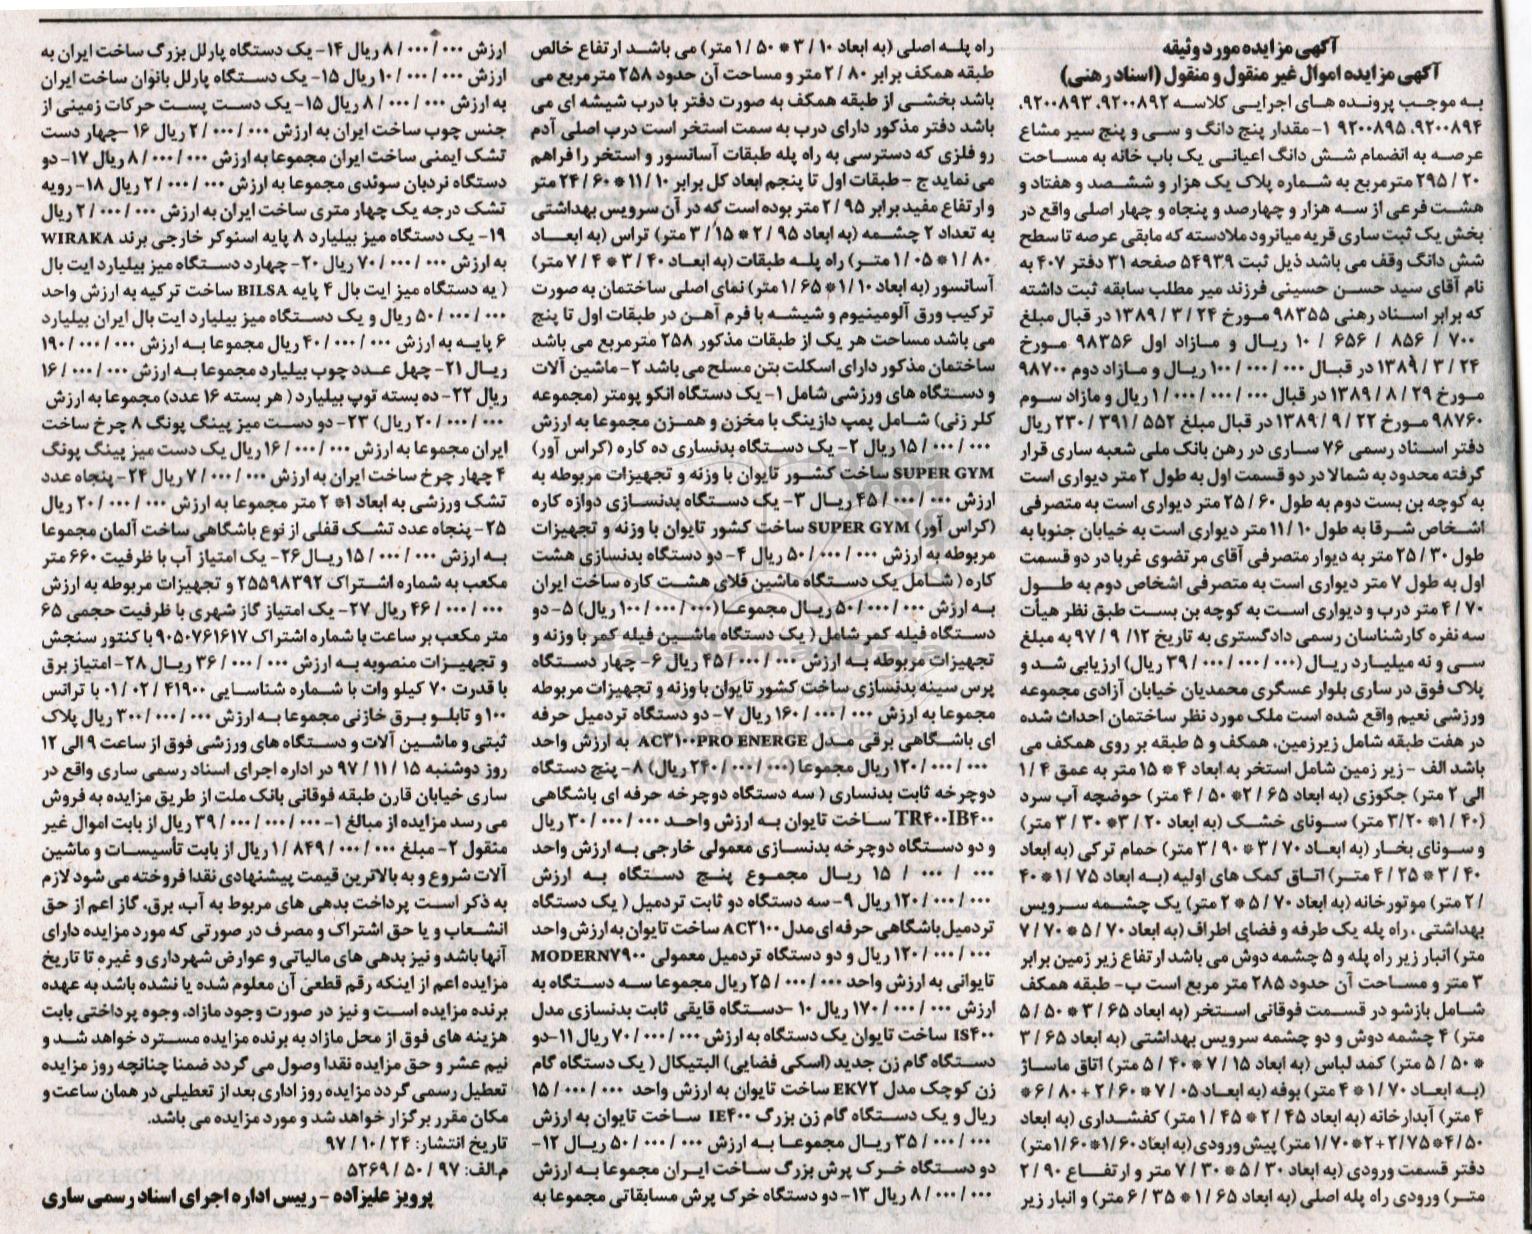 آگهی مزایده مورد وثیقه
آگهی مزایده اموال غیر منقول و منقول (اسناد رهنی)
به موجب پرونده های اجرایی کلاسه ۹۲۰۰۸۹۲، ۹۲۰۰۸۹۳،
۹۲۰۰۸۹۴، ۹۲۰۰۸۹۵ ۱- مقدار پنج دانگ و سی و پنج سیر مشاع
عرصه به انضمام شش دانگ اعیانی یک باب خانه به مساحت
۲۹۵/۲۰ مترمربع به شماره پلاک یک هزار و ششصد و هفتاد و
هشت فرعی از سه هزار و چهارصد و پنجاه و چهار اصلی واقع در
بخش یک ثبت ساری قریه میانرود ملادسته که مابقی عرصه تا سطح
شش دانگ وقف می باشد ذیل ثبت ۵۴۹۳۹ صفحه ۳۱ دفتر ۴۰۷ به
نام آقای سید حسن حسینی فرزند میر مطلب سابقه ثبت داشته
که برابر اسناد رهنی ۹۸۳۵۵ مورخ ۱۳۸۹/۳/۲۴ در قبال مبلغ
۱۰/۶۵۶/۸۵۶/۷۰۰ ریال و مازاد اول ۹۸۳۵۶ مورخ
۱۳۸۹/۳/۲۴ در قبال ۱۰۰/۰۰۰/۰۰۰ ریال و مازاد دوم ۹۸۷۰۰
مورخ ۱۳۸۹/۸/۲۹ در قبال ۱/۰۰۰/۰۰۰/۰۰۰ ریال و مازاد سوم
۹۸۷۶۰ مورخ ۱۳۸۹/۹/۲۲ در قبال مبلغ ۲۳۰/۳۹۱/۵۵۲ ریال
دفتر اسناد رسمی ۷۶ ساری در رهن بانک ملی شعبه ساری قرار
گرفته محدود به شمالا در دو قسمت اول به طول ۲ متر دیواری است
به کوچه بن بست دوم به طول ۲۵/۶۰ متر دیواری است به متصرفی
اشخاص شرقا به طول ۱۱/۱۰ متر دیواری است به خیابان جنوبا به
طول ۲۵/۳۰ متر به دیوار متصرفی آقای مرتضوی غربا در دو قسمت
اول به طول ۷ متر دیواری است به متصرفی اشخاص دوم به طول
۴/۷۰ متر درب و دیواری است به کوچه بن بست طبق نظر هیأت
سه نفره کارشناسان رسمی دادگستری به تاریخ ۹۷/۹/۱۲ به مبلغ
سی و نه میلیارد ریال (۳۹/۰۰۰/۰۰۰/۰۰۰ ریال) ارزیابی شد و
پلاک فوق در ساری بلوار عسگری محمدیان خیابان آزادی مجموعه
ورزشی نعیم واقع شده است ملک مورد نظر ساختمان احداث شده
در هفت طبقه شامل زیرزمین، همکف و ۵ طبقه بر روی همکف می
باشد الف - زیر زمین شامل استخر به ابعاد ۴ * ۱۵ متر به عمق ۱/۴
الی ۲ متر) جکوزی (به ابعاد ۲/۶۵* ۴/۵۰ متر) حوضچه آب سرد
(۱/۴۰* ۳/۲۰ متر) سونای خشک (به ابعاد ۳/۲۰* ۳/۳۰ متر)
و سونای بخار (به ابعاد ۳/۷۰ * ۳/۹۰ متر) حمام ترکی (به ابعاد
۳/۴۰ * ۴/۲۵ متر) اتاق کمک های اولیه (به ابعاد ۱/۷۵ * ۴۰
/۲ متر) موتورخانه (به ابعاد ۵/۷۰ * ۲ متر) یک چشمه سرویس
بهداشتی، راه پله یک طرفه و فضای اطراف (به ابعاد ۵/۷۰ * ۷/۷۰
متر) انبار زیر راه پله و ۵ چشمه دوش می باشد ارتفاع زیر زمین برابر
۳ متر و مساحت آن حدود ۲۸۵ متر مربع است ب- طبقه همکف
شامل بازشو در قسمت فوقانی استخر (به ابعاد ۳/۶۵ * ۵/۵۰
متر) ۴ چشمه دوش و دو چشمه سرویس بهداشتی (به ابعاد ۳/۶۵
* ۵/۵۰ متر) کمد لباس (به ابعاد ۷/۱۵ * ۵/۴۰ متر) اتاق ماساژ
(به ابعاد ۱/۷۰ * ۴ متر) بوفه (به ابعاد ۷/۰۵ * ۲/۶۰ + ۶/۸۰ *
۴ متر) آبدارخانه (به ابعاد ۲/۴۵ * ۱/۴۵ متر) کفشداری (به ابعاد
۴/۵۰*۲/۷۵+۲*۱/۷۰ متر) پیش ورودی (به ابعاد ۱/۶۰*۱/۶۰ متر)
دفتر قسمت ورودی (به ابعاد ۵/۳۰ * ۷/۳۰ متر و ارتفاع ۲/۹۰
متر) ورودی راه پله اصلی (به ابعاد ۱/۶۵ * ۶/۳۵ متر) و انبار زیر
راه پله اصلی (به ابعاد ۳/۱۰ * ۱/۵۰ متر) می باشد ارتفاع خالص
طبقه همکف برابر ۲/۸۰ متر و مساحت آن حدود ۲۵۸ مترمربع می
باشد بخشی از طبقه همکف به صورت دفتر با درب شیشه ای می
باشد دفتر مذکور دارای درب به سمت استخر است درب اصلی آدم
رو فلزی که دسترسی به راه پله طبقات آسانسور و استخر را فراهم
می نماید ج - طبقات اول تا پنجم ابعاد کل برابر ۱۱/۱۰ * ۲۴/۶۰ متر
و ارتفاع مفید برابر ۲/۹۵ متر بوده است که در آن سرویس بهداشتی
به تعداد ۲ چشمه (به ابعاد ۲/۹۵ * ۳/۱۵ متر) تراس (به ابعاد
۱/۸۰ * ۱/۰۵ متر) راه پله طبقات (به ابعاد ۳/۴۰ * ۷/۴ متر)
آسانسور (به ابعاد ۱/۱۰ * ۱/۶۵ متر) نمای اصلی ساختمان به صورت
ترکیب ورق آلومینیوم و شیشه با فرم آهن در طبقات اول تا پنج
می باشد مساحت هر یک از طبقات مذکور ۲۵۸ مترمربع می باشد
ساختمان مذکور دارای اسکلت بتن مسلح می باشد ۲- ماشین آلات
و دستگاه های ورزشی شامل ۱- یک دستگاه انکو پومتر (مجموعه
کلر زنی) شامل پمپ دازینگ با مخزن و همزن مجموعا به ارزش
۱۵/۰۰۰/۰۰۰ ریال ۲- یک دستگاه بدنسازی ده کاره (کراس آور)
SUPER GYM ساخت کشور تایوان با وزنه و تجهیزات مربوطه به
ارزش ۴۵/۰۰۰/۰۰۰ ریال ۳- یک دستگاه بدنسازی دوازه کاره
(کراس آور) SUPER GYM ساخت کشور تایوان با وزنه و تجهیزات
مربوطه به ارزش ۵۰/۰۰۰/۰۰۰ ریال ۴- دو دستگاه بدنسازی هشت
کاره ( شامل یک دستگاه ماشین قلای هشت کاره ساخت ایران
به ارزش ۵۰/۰۰۰/۰۰۰ ریال مجموعا (۱۰۰/۰۰۰/۰۰۰ ریال) ۵- دو
دستگاه فیله کمر شامل ( یک دستگاه ماشین فیله کمر با وزنه و
تجهیزات مربوطه به ارزش ۴۵/۰۰۰/۰۰۰ ریال ۶- چهار دستگاه
پرس سینه بدنسازی ساخت کشور تایوان با وزنه و تجهیزات مربوطه
مجموعا به ارزش ۱۶۰/۰۰۰/۰۰۰ ریال ۷- دو دستگاه تردمیل حرفه
ای باشگاهی برقی مدل AC۳۱۰۰PRO ENERGE به ارزش واحد
۱۲۰/۰۰۰/۰۰۰ ریال مجموعا (۲۴۰/۰۰۰/۰۰۰ ریال) ۸- پنج دستگاه
دوچرخه ثابت بدنساری ( سه دستگاه دوچرخه حرفه ای باشگاهی
TR۴۰۰IB۴۰۰ ساخت تایوان به ارزش واحد ۳۰/۰۰۰/۰۰۰ ریال
و دو دستگاه دوچرخه بدنسازی معمولی خارجی به ارزش واحد
۱۵/۰۰۰/۰۰۰ ریال مجموع پنج دستگاه به ارزش
۱۲۰/۰۰۰/۰۰۰ ریال ۹- سه دستگاه دو ثابت تردمیل ( یک دستگاه
تردمیل باشگاهی حرفه ای مدل AC۳۱۰۰ ساخت تایوان به ارزش واحد
۱۲۰/۰۰۰/۰۰۰ ریال و دو دستگاه تردمیل معمولی MODERN۷۹۰۰
تایوانی به ارزش واحد ۲۵/۰۰۰/۰۰۰ ریال مجموعا سه دستگاه به
ارزش ۱۷۰/۰۰۰/۰۰۰ ریال ۱۰- دستگاه قایقی ثابت بدنسازی مدل
IS۴۰۰ ساخت تایوان یک دستگاه به ارزش ۷۰/۰۰۰/۰۰۰ ریال ۱۱- دو
دستگاه گام زن جدید (اسکی فضایی) الپتیکال ( یک دستگاه گام
زن کوچک مدل EK۷۲ ساخت تایوان به ارزش واحد ۱۵/۰۰۰/۰۰۰
ریال و یک دستگاه گام زن بزرگ IE۴۰۰ ساخت تایوان به ارزش
۳۵/۰۰۰/۰۰۰ ریال مجموعا به ارزش ۵۰/۰۰۰/۰۰۰ ریال ۱۲-
دو دستگاه خرک پرش بزرگ ساخت ایران مجموعا به ارزش
۸/۰۰۰/۰۰۰ ریال ۱۳- دو دستگاه خرک پرش مسابقاتی مجموعا به
ارزش ۸/۰۰۰/۰۰۰ ریال ۱۴- یک دستگاه پارلل بزرگ ساخت ایران به
ارزش ۱۰/۰۰۰/۰۰۰ ریال ۱۵- یک دستگاه پارلل بانوان ساخت ایران
به ارزش ۸/۰۰۰/۰۰۰ ریال ۱۵- یک دست پست حرکات زمینی از
جنس چوب ساخت ایران به ارزش ۲/۰۰۰/۰۰۰ ریال ۱۶- چهار دست
تشک ایمنی ساخت ایران مجموعا به ارزش ۸/۰۰۰/۰۰۰ ریال ۱۷- دو
دستگاه نردبان سوئدی مجموعا به ارزش ۲/۰۰۰/۰۰۰ ریال ۱۸- رویه
تشک درجه یک چهار متری ساخت ایران به ارزش ۲/۰۰۰/۰۰۰ ریال
۱۹- یک دستگاه میز بیلیارد ۸ پایه اسنوکر خارجی برند WIRAKA
به ارزش ۷۰/۰۰۰/۰۰۰ ریال ۲۰- چهارد دستگاه میز بیلیارد ایت بال
( یه دستگاه میز ایت بال ۴ پایه BILSA ساخت ترکیه به ارزش واحد
۵۰/۰۰۰/۰۰۰ ریال و یک دستگاه میز بیلیارد ایت بال ایران بیلیارد
۶ پایه به ارزش ۴۰/۰۰۰/۰۰۰ ریال مجموعا به ارزش ۱۹۰/۰۰۰/۰۰۰
ریال ۲۱- چهل عدد چوب بیلیارد مجموعا به ارزش ۱۶/۰۰۰/۰۰۰
ریال ۲۲- ده بسته توپ بیلیارد ( هر بسته ۱۶ عدد) مجموعا به ارزش
۲۰/۰۰۰/۰۰۰ ریال) ۲۳- دو دست میز پینگ پونگ ۸ چرخ ساخت
ایران مجموعا به ارزش ۱۶/۰۰۰/۰۰۰ ریال یک دست میز پینگ پونگ
۴ چهار چرخ ساخت ایران به ارزش ۷/۰۰۰/۰۰۰ ریال ۲۴- پنجاه عدد
تشک ورزشی به ابعاد ۱* ۲ متر مجموعا به ارزش ۲۰/۰۰۰/۰۰۰ ریال
۲۵- پنجاه عدد تشک قفلی از نوع باشگاهی ساخت آلمان مجموعا
به ارزش ۱۵/۰۰۰/۰۰۰ ریال ۲۶- یک امتیاز آب با ظرفیت ۶۶۰ متر
مکعب به شماره اشتراک ۲۵۵۹۸۳۹۲ و تجهیزات مربوطه به ارزش
۴۶/۰۰۰/۰۰۰ ریال ۲۷- یک امتیاز گاز شهری با ظرفیت حجمی ۶۵
متر مکعب بر ساعت با شماره اشتراک ۹۰۵۰۷۶۱۶۱۷ با کنتور سنجش
و تجهیزات منصوبه به ارزش ۳۶/۰۰۰/۰۰۰ ریال ۲۸- امتیاز برق
با قدرت ۷۰ کیلو وات با شماره شناسایی ۰۱/۰۲/۴۱۹۰۰ با ترانس
۱۰۰ و تابلو برق خازنی مجموعا به ارزش ۳۰۰/۰۰۰/۰۰۰ ریال پلاک
ثبتی و ماشین آلات و دستگاه های ورزشی فوق از ساعت ۹ الی ۱۲
روز دوشنبه ۹۷/۱۱/۱۵ در اداره اجرای اسناد رسمی ساری واقع در
ساری خیابان قارن طبقه فوقانی بانک ملت از طریق مزایده به فروش
می رسد مزایده از مبالغ ۱- ۳۹/۰۰۰/۰۰۰/۰۰۰ ریال از بابت اموال غیر
منقول ۲- مبلغ ۱/۸۴۹/۰۰۰/۰۰۰ ریال از بابت تأسیسات و ماشین
آلات شروع و به بالاترین قیمت پیشنهادی نقدا فروخته می شود لازم
به ذکر است پرداخت بدهی های مربوط به آب، برق، گاز اعم از حق
انشعاب و یا حق اشتراک و مصرف در صورتی که مورد مزایده دارای
آنها باشد و نیز بدهی های مالیاتی و عوارض شهرداری و غیره تا تاریخ
مزایده اعم از اینکه رقم قطعی آن معلوم شده یا نشده باشد به عهده
برنده مزایده است و نیز در صورت وجود مازاد، وجوه پرداختی بابت
هزینه های فوق از محل مازاد به برنده مزایده مسترد خواهد شد و
نیم عشر و حق مزایده نقدا وصول می گردد ضمنا چنانچه روز مزایده
تعطیل رسمی گردد مزایده روز اداری بعد از تعطیلی در همان ساعت و
مکان مقرر برگزار خواهد شد و مورد مزایده می باشد.
تاریخ انتشار: ۹۷/۱۰/۲۴
م.الف: ۹۷/۵۰/۵۲۶۹
پرویز علیزاده - رییس اداره اجرای اسناد رسمی ساری